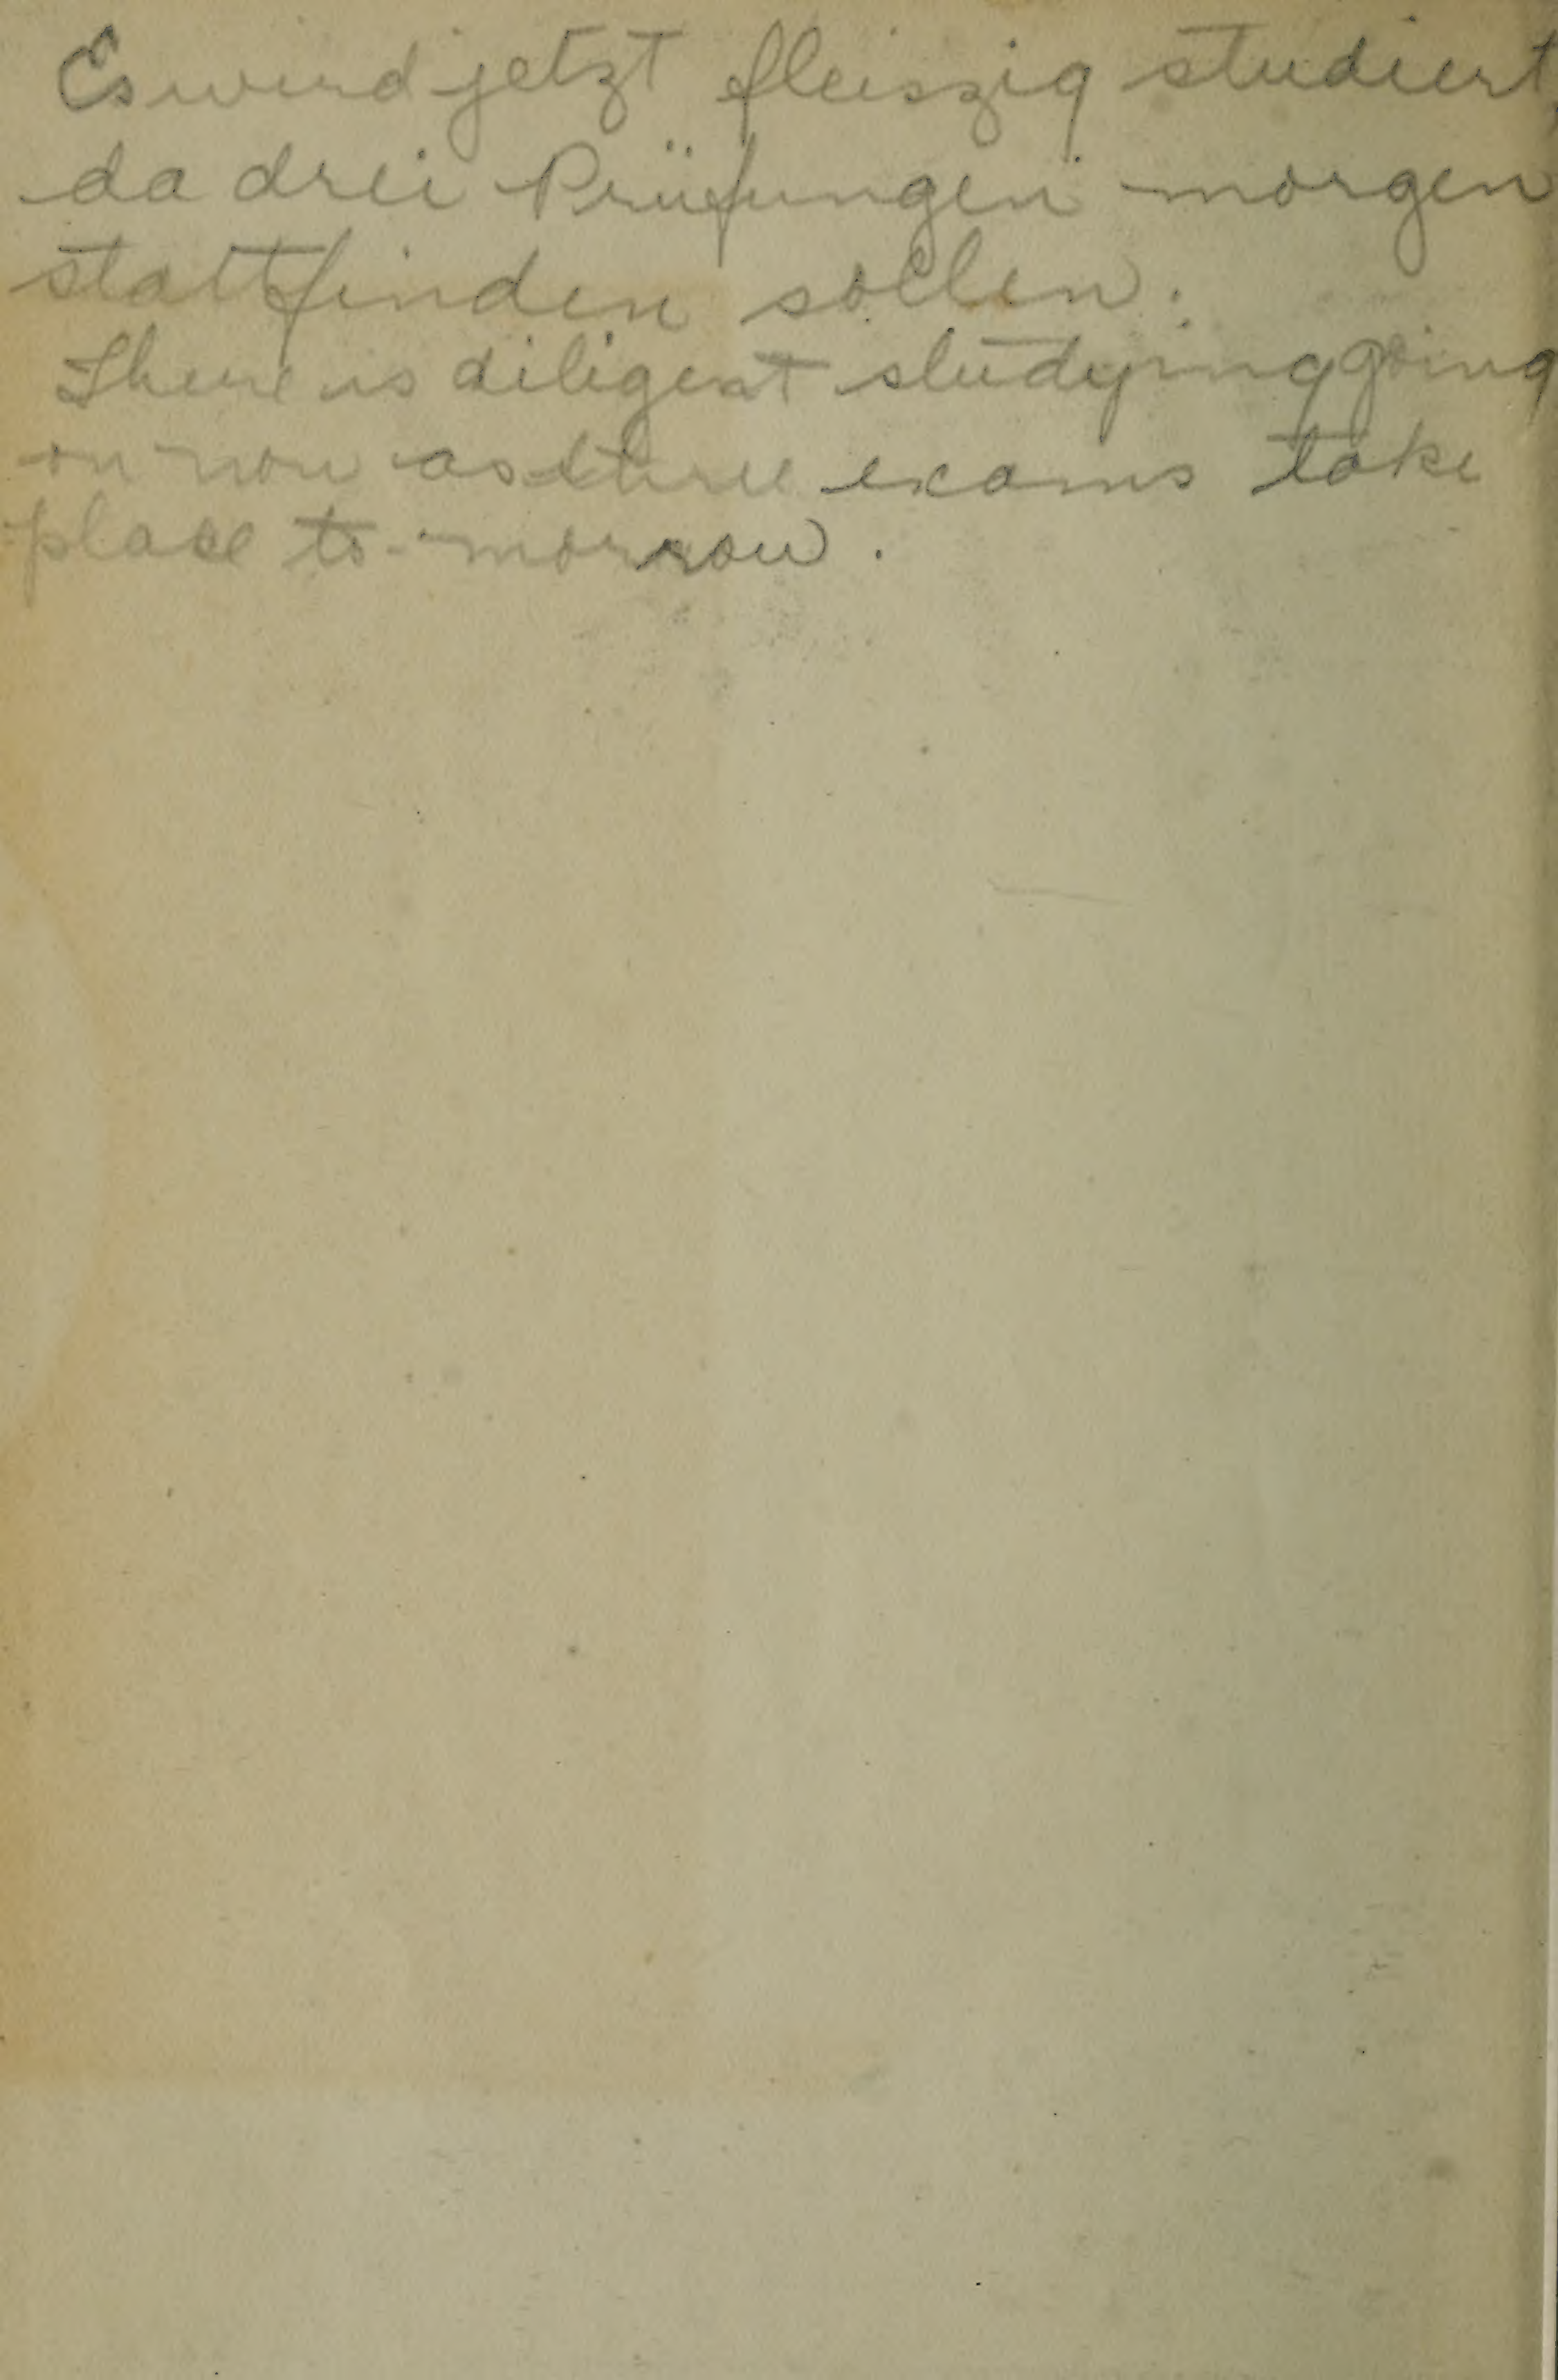 Es wird jetzt fleiszig studiert,
da drei Prüfungen morgen
stattfinden sollen.
There is diligent studying going
on now as three exams take
place to-morrow.